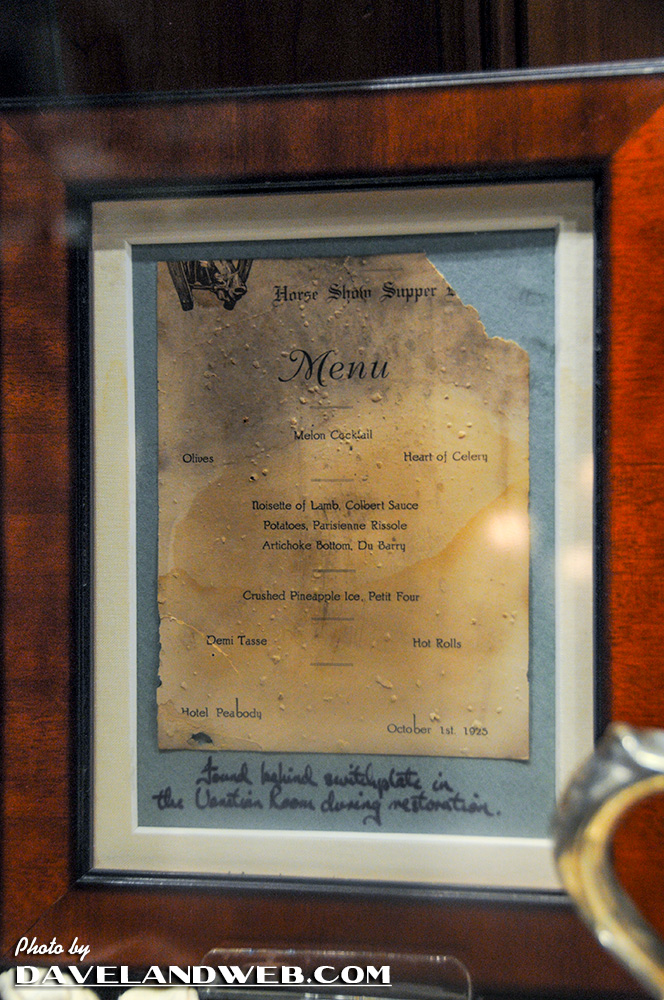 Horse Show Supper
Menu
Melon Cocktail
Olives Heart of Celery
Noisette of Lamb, Colbert Sauce
Potatoes, Parisienne Rissole
Artichoke Bottom, Du Barry
Crushed Pineapple Ice, Petit Four
Demi Tasse Hot Rolls
Hotel Peabody
October 1st. 1925
found behind switchplate in
the Venetian Room during restoration.
Photo by
DAVELANDWEB.COM